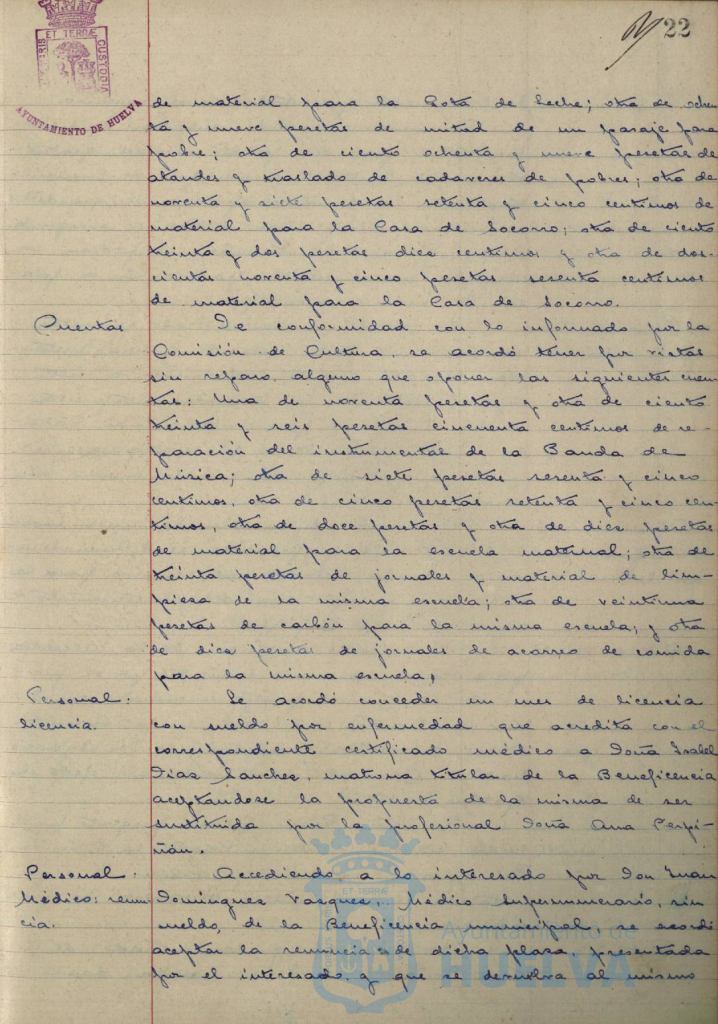 22
PORTUS MARIS ET TERRÆ CUSTODIA
AYUNTAMIENTO DE HUELVA
de material para la Gota de Leche; otra de ochen
ta y nueve pesetas de mitad de un pasaje para
pobre; otra de ciento ochenta y nueve pesetas de
ataudes y traslado de cadaveres de pobres; otra de
noventa y siete pesetas setenta y cinco centimos de
material para la Casa de Socorro; otra de ciento
treinta y dos pesetas diez centimos y otra de dos-
cientas noventa y cinco pesetas sesenta centimos
de material para la Casa de Socorro.
Cuentas
De conformidad con lo informado por la
Comisión de Cultura, se acordó tener por vistas
sin reparo alguno que oponer las siguientes cuen
tas: Una de noventa pesetas y otra de ciento
treinta y seis pesetas cincuenta centimos de re-
paración del instrumental de la Banda de
Música; otra de siete pesetas sesenta y cinco
centimos, otra de cinco pesetas setenta y cinco cen-
timos, otra de doce pesetas y otra de diez pesetas
de material para la escuela maternal; otra de
treinta pesetas de jornales y material de lim-
pieza de la misma escuela; otra de veintiuna
pesetas de carbón para la misma escuela; y otra
de diez pesetas de jornales de acarreo de comida
para la misma escuela,
Personal:
licencia.
Se acordó conceder un mes de licencia
con sueldo por enfermedad que acredita con el
correspondiente certificado médico a Doña Isabel
Diaz Sanchez, matrona titular de la Beneficencia
aceptandose la propuesta de la misma de ser
sustituida por la profesional Doña Ana Perpi-
ñán.
Personal.
Médico: renun
cia.
Accediendo a lo interesado por Don Juan
Dominguez Vasquez, Médico Supernumerario, sin
sueldo, de la Beneficencia municipal, se acordó
aceptar la renuncia de dicha plaza, presentada
por el interesado y que se devuelva al mismo
ET TERRÆ
Ayuntamiento de
HUELVA